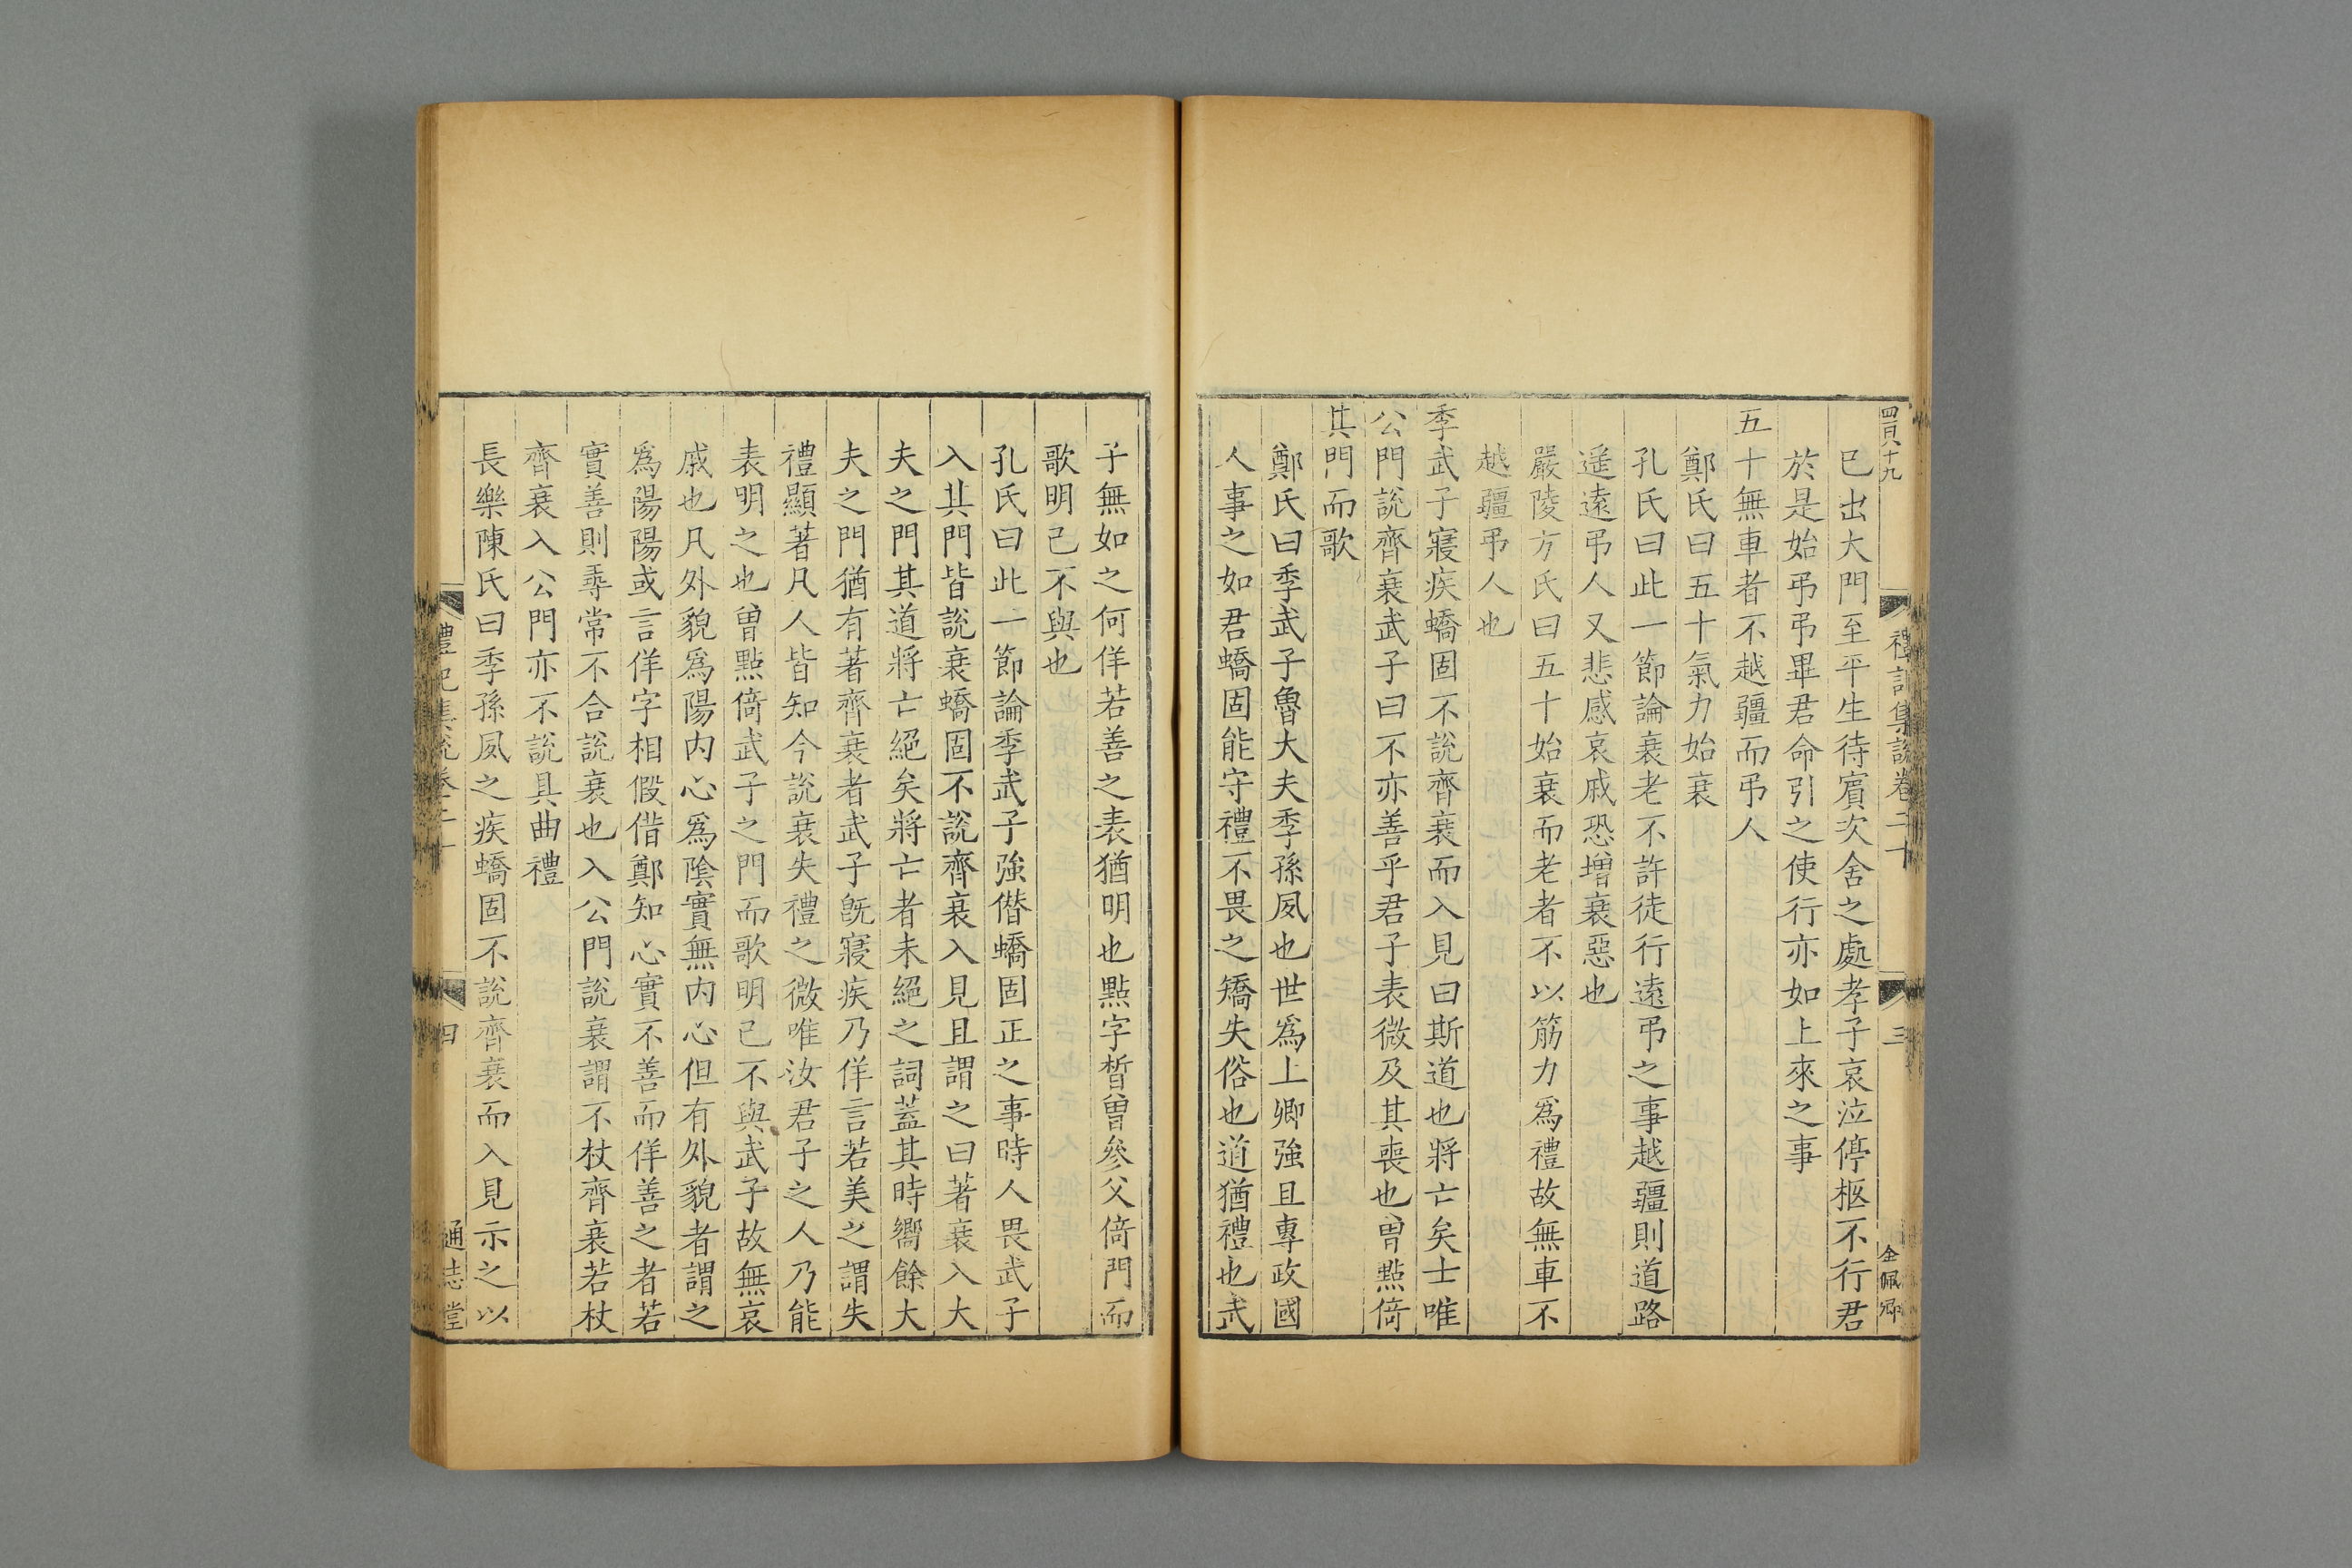 四百十九
禮記集說卷二十
三
金佩卿
已出大門至平生待賔次舍之處孝子哀泣停柩不行君
於是始弔弔畢君命引之使行亦如上來之事
五十無車者不越疆而弔人
鄭氏曰五十氣力始衰
孔氏曰此一節論衰老不許徒行遠弔之事越疆則道路
遥遠弔人又悲感哀戚恐增衰惡也
嚴陵方氏曰五十始衰而老者不以筋力爲禮故無車不
越疆弔人也
季武子寢疾蟜固不說齊衰而入見曰斯道也將亡矣士唯
公門說齊衰武子曰不亦善乎君子表微及其喪也曾㸃倚
其門而歌
鄭氏曰季武子魯大夫季孫夙也世爲上卿強且專政國
人事之如君蟜固能守禮不畏之矯失俗也道猶禮也武
子無如之何佯若善之表猶明也點字晳曾參父倚門而
歌明己不與也
孔氏曰此一節論季武子強僭蟜固正之事時人畏武子
入其門皆說衰蟜固不說齊衰入見且謂之曰著衰入大
夫之門其道將亡絕矣將亡者未絕之詞蓋其時嚮餘大
夫之門猶有著齊衰者武子旣寢疾乃佯言若美之謂失
禮顯著凡人皆知今說衰失禮之微唯汝君子之人乃能
表明之也曾點倚武子之門而歌明己不與武子故無哀
戚也凡外貌爲陽内心爲陰實無内心但有外貌者謂之
爲陽陽或言佯字相假借鄭知心實不善而佯善之者若
實善則尋常不合說衰也入公門說衰謂不杖齊衰若杖
齊衰入公門亦不說具曲禮
長樂陳氏曰季孫夙之疾蟜固不說齊衰而入見示之以
禮記集說卷二十
四
通志堂